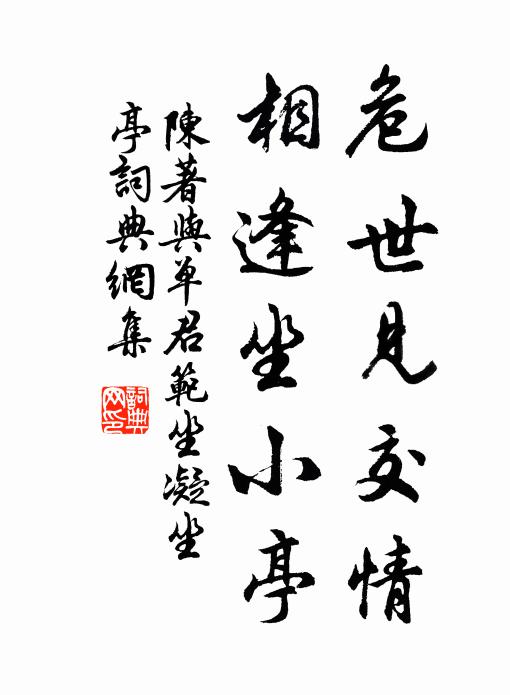 危世見交情
相逢坐小亭
陳著與單君範坐凝坐
亭詞典網集
詞典网印